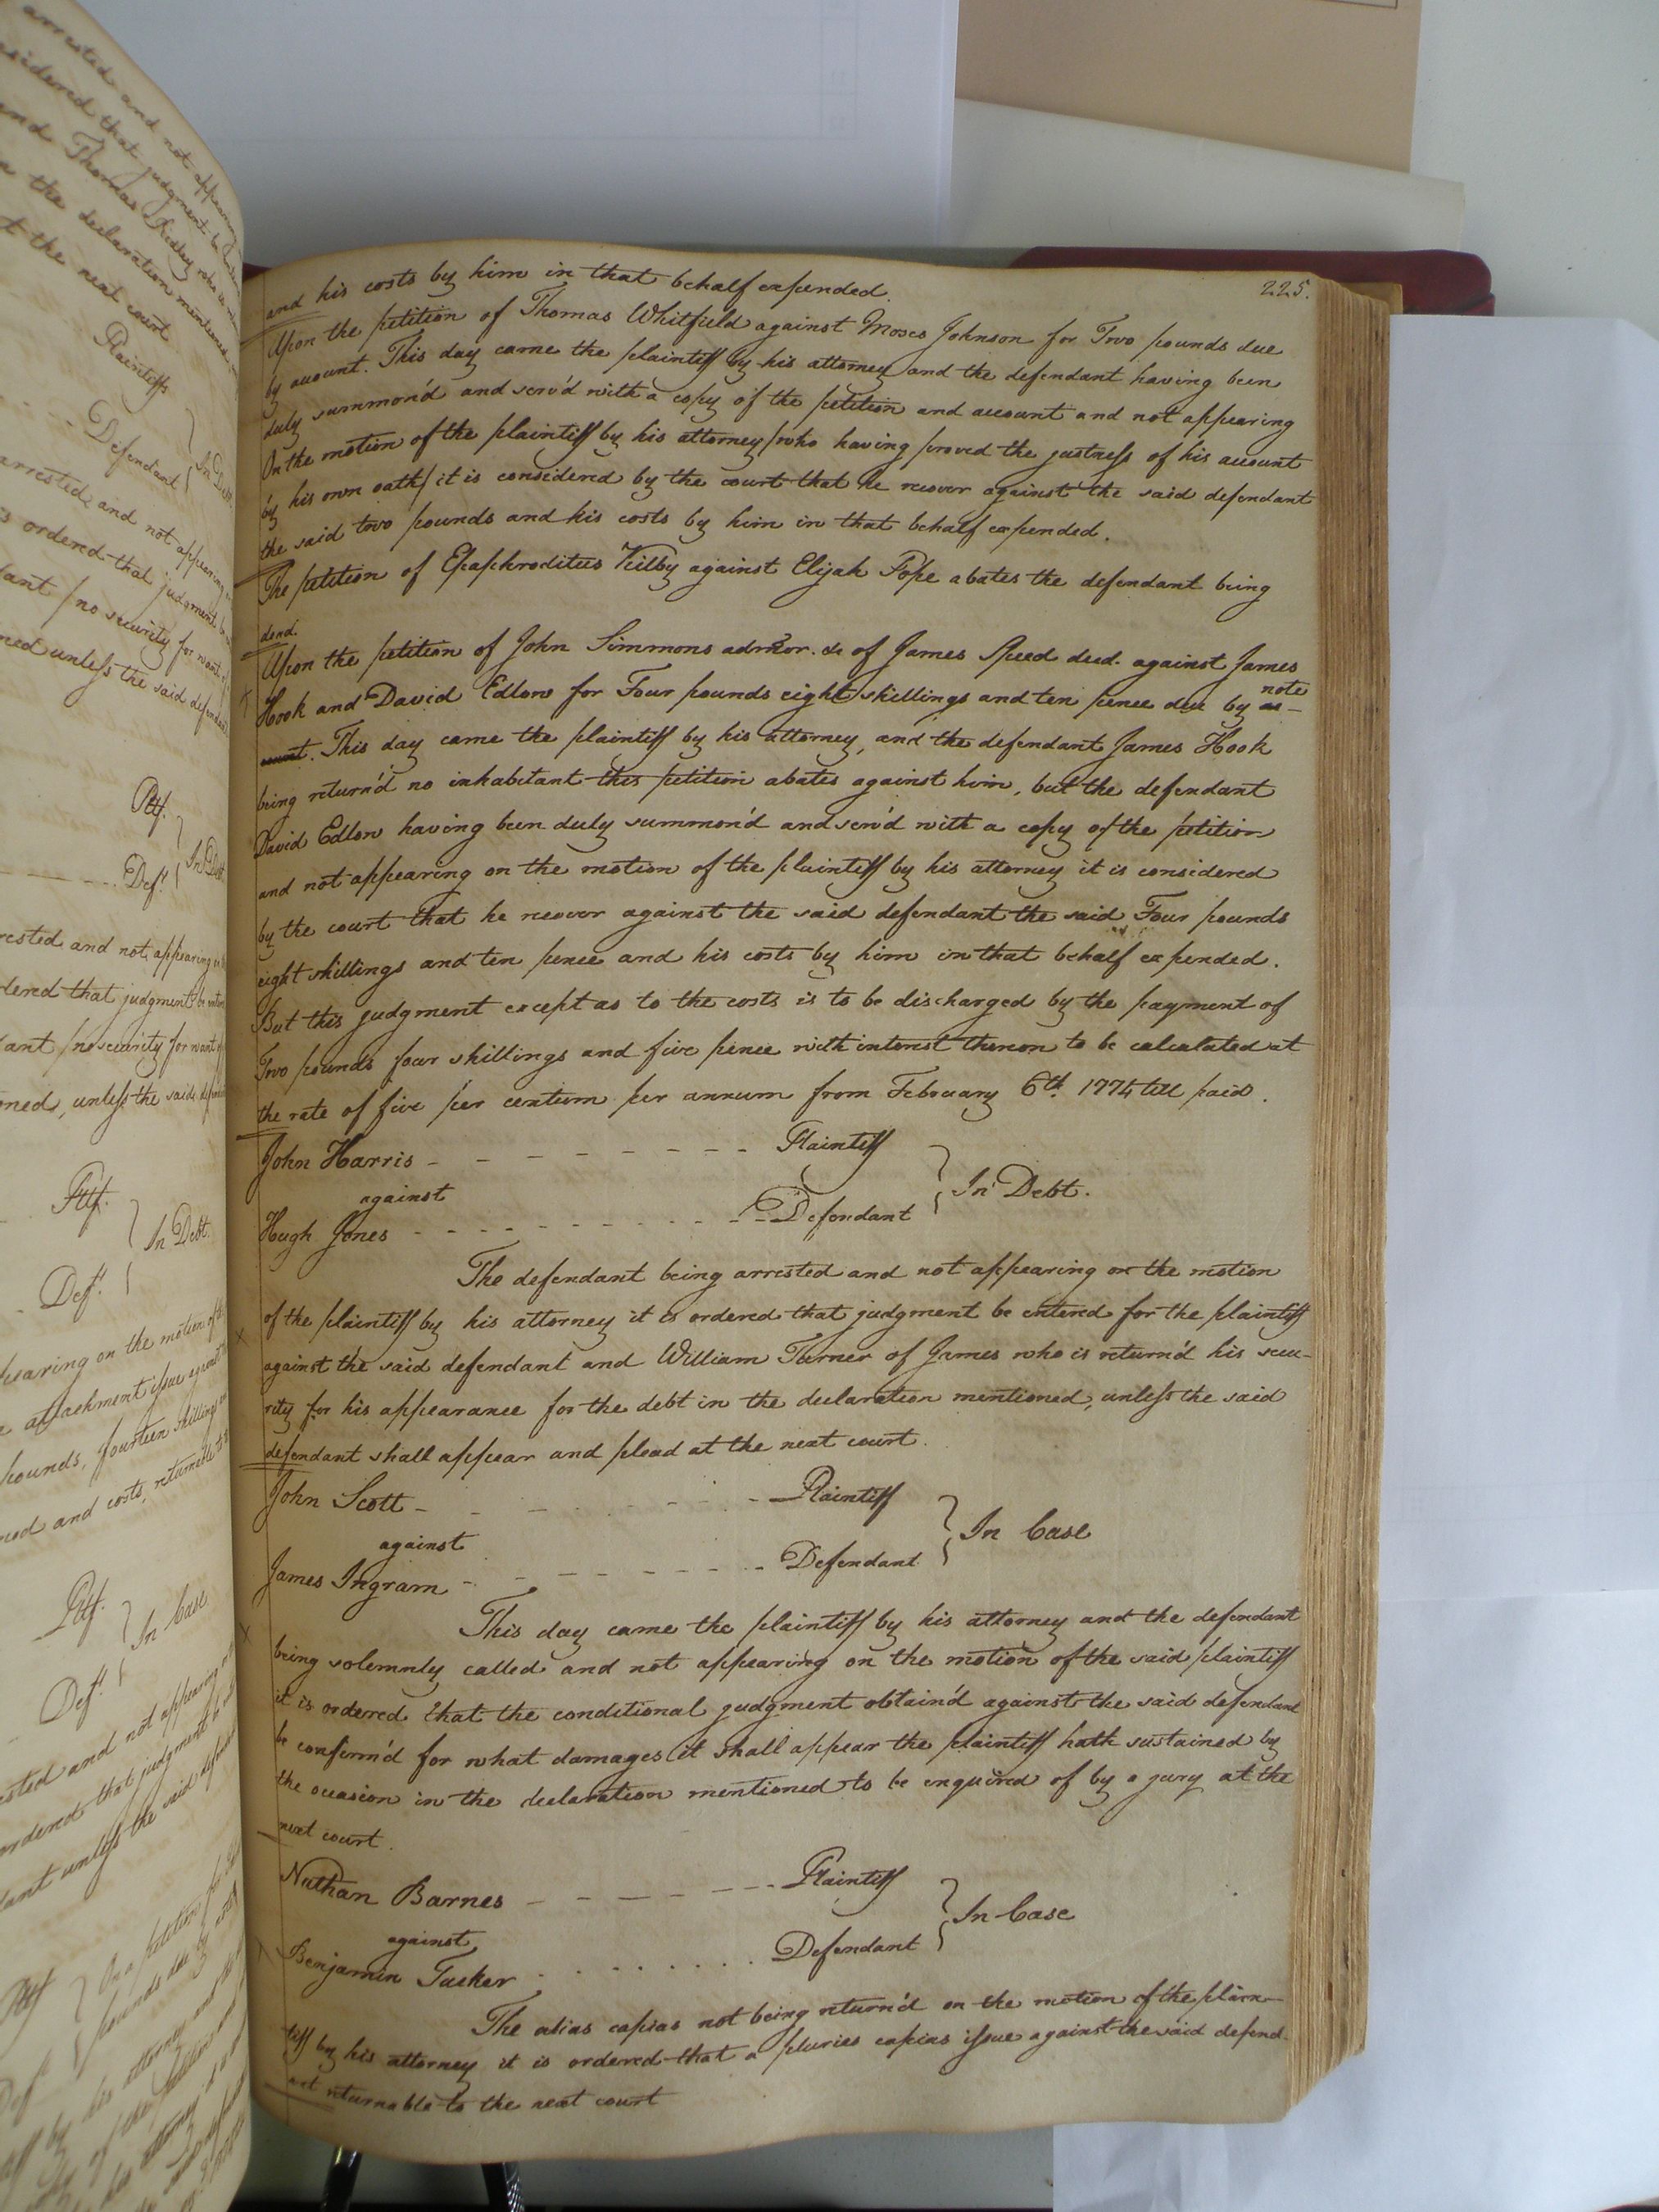 arrested and not appearing
considered that judgment be
and Thomas who is
the declaration mentioned
at the next court
Plaintiffs
Defendant
arrested and not appearing
is ordered that judgment
/no security for want
unless the said defendant
Pltf.
In Debt
Def.t
and not appearing
that judgment be
/no security for want
unless the said
Pltf.
In Debt.
Def.t
on the motion of
attachment issue against
pounds, fourteen shillings
and costs, returnable
Pltf.
In Case
Def.t
and not appearing
ordered that judgment be
unless the said
Pltf
On a petition for
pounds due by
Def.t
by his attorney and
copy of the petition
his attorney
225.
and his costs by him in that behalf expended.
Upon the petition of Thomas Whitfield against Moses Johnson for Two pounds due
by account. This day came the plaintiff by his attorney and the defendant having been
duly summon'd and serv'd with a copy of the petition and account and not appearing
On the motion of the plaintiff by his attorney /who having proved the justness of his account
by his own oath/ it is considered by the court that he recover against the said defendant
the said two pounds and his costs by him in that behalf expended.
The petition of Epaphroditus Kilby against Elijah Pope abates the defendant being
dead.
Upon the petition of John Simmons admor. &c of James Speed decd. against James
Hook and David Edlow for Four pounds eight shillings and ten pence due by note ac-
count. This day came the plaintiff by his attorney, and the defendant James Hook
being return'd no inhabitant this petition abates against him, but the defendant
David Edlow having been duly summon'd and serv'd with a copy of the petition
and not appearing on the motion of the plaintiff by his attorney it is considered
by the court that he recover against the said defendant the said Four pounds
eight shillings and ten pence and his costs by him in that behalf expended.
But this judgment except as to the costs is to be discharged by the payment of
Two pounds four shillings and five pence with interest thereon to be calculated at
the rate of five per centum per annum from February 6th. 1774 till paid.
John Harris - - - - - - - - - Plaintiff
against
In Debt.
Hugh Jones - - - - - - - - - - - Defendant
The defendant being arrested and not appearing on the motion
of the plaintiff by his attorney it is ordered that judgment be entered for the plaintiff
against the said defendant and William Turner of James who is return'd his secu-
rity for his appearance for the debt in the declaration mentioned, unless the said
defendant shall appear and plead at the next court.
John Scott - - - - - - - Plaintiff
against
In Case
James Ingram - - - - - - - - Defendant
This day came the plaintiff by his attorney and the defendant
being solemnly called and not appearing on the motion of the said plaintiff
it is ordered that the conditional judgment obtain'd against the said defendant
be confirm'd for what damages it shall appear the plaintiff hath sustained by
the occasion in the declaration mentioned to be enquired of by a jury at the
next court.
Nathan Barnes - - - - - - - Plaintiff
against
In Case
Benjamin Tucker . . . . . . . . Defendant
The alias capias not being return'd on the motion of the plain-
tiff by his attorney it is ordered that a pluries capias issue against the said defend-
ant returnable to the next court